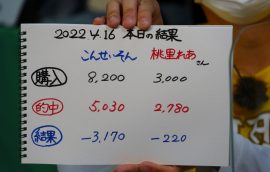 2022 4.16 本日の結果
こんせいそん 桃里れあさん
購入 8,200 3,000
的中 5,030 2,780
結果 -3,170 -220